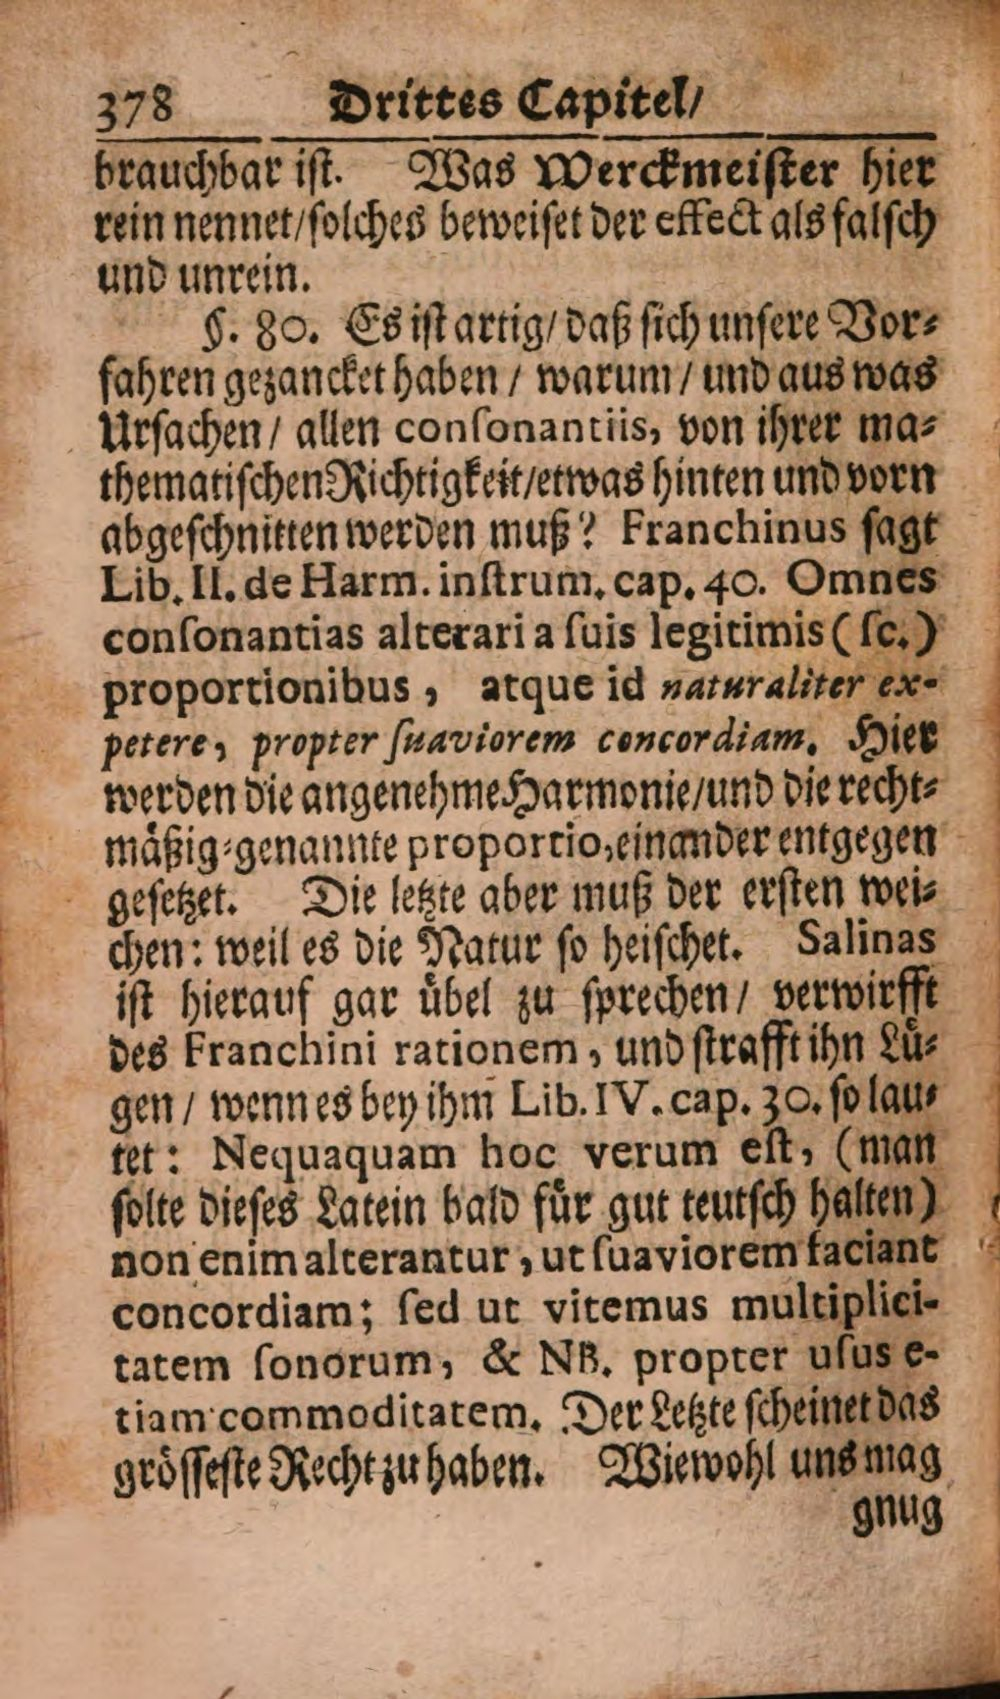 378 Drittes Capitel/
brauchbar ist. Was Werckmeister hier
rein nennet/solches beweiset der effect als falsch
und unrein.
§. 80. Es ist artig/ daß sich unsere Vor⸗
fahren gezancket haben / warum / und aus was
Ursachen / allen conſonantiis, von ihrer ma⸗
thematischen Richtigkeit/etwas hinten und vorn
abgeschnitten werden muß? Franchinus sagt
Lib. II. de Harm. inſtrum. cap. 40. Omnes
conſonantias alterari a ſuis legitimis (ſc.)
proportionibus, atque id naturaliter ex-
petere, propter ſuaviorem concordiam. Hier
werden die angenehme Harmonie/und die recht⸗
mäßig⸗genannte proportio, einander entgegen
gesetzet. Die letzte aber muß der ersten wei⸗
chen: weil es die Natur so heischet. Salinas
ist hierauf gar übel zu sprechen / verwirfft
des Franchini rationem, und strafft ihn Lü⸗
gen / wenn es bey ihm Lib. IV. cap. 30. so lau⸗
tet: Nequaquam hoc verum eſt, (man
solte dieses Latein bald für gut teutsch halten)
non enim alterantur, ut ſuaviorem faciant
concordiam; ſed ut vitemus multiplici-
tatem ſonorum, & NB. propter uſus e-
tiam commoditatem. Der Letzte scheinet das
grösseste Recht zu haben. Wiewohl uns mag
gnug